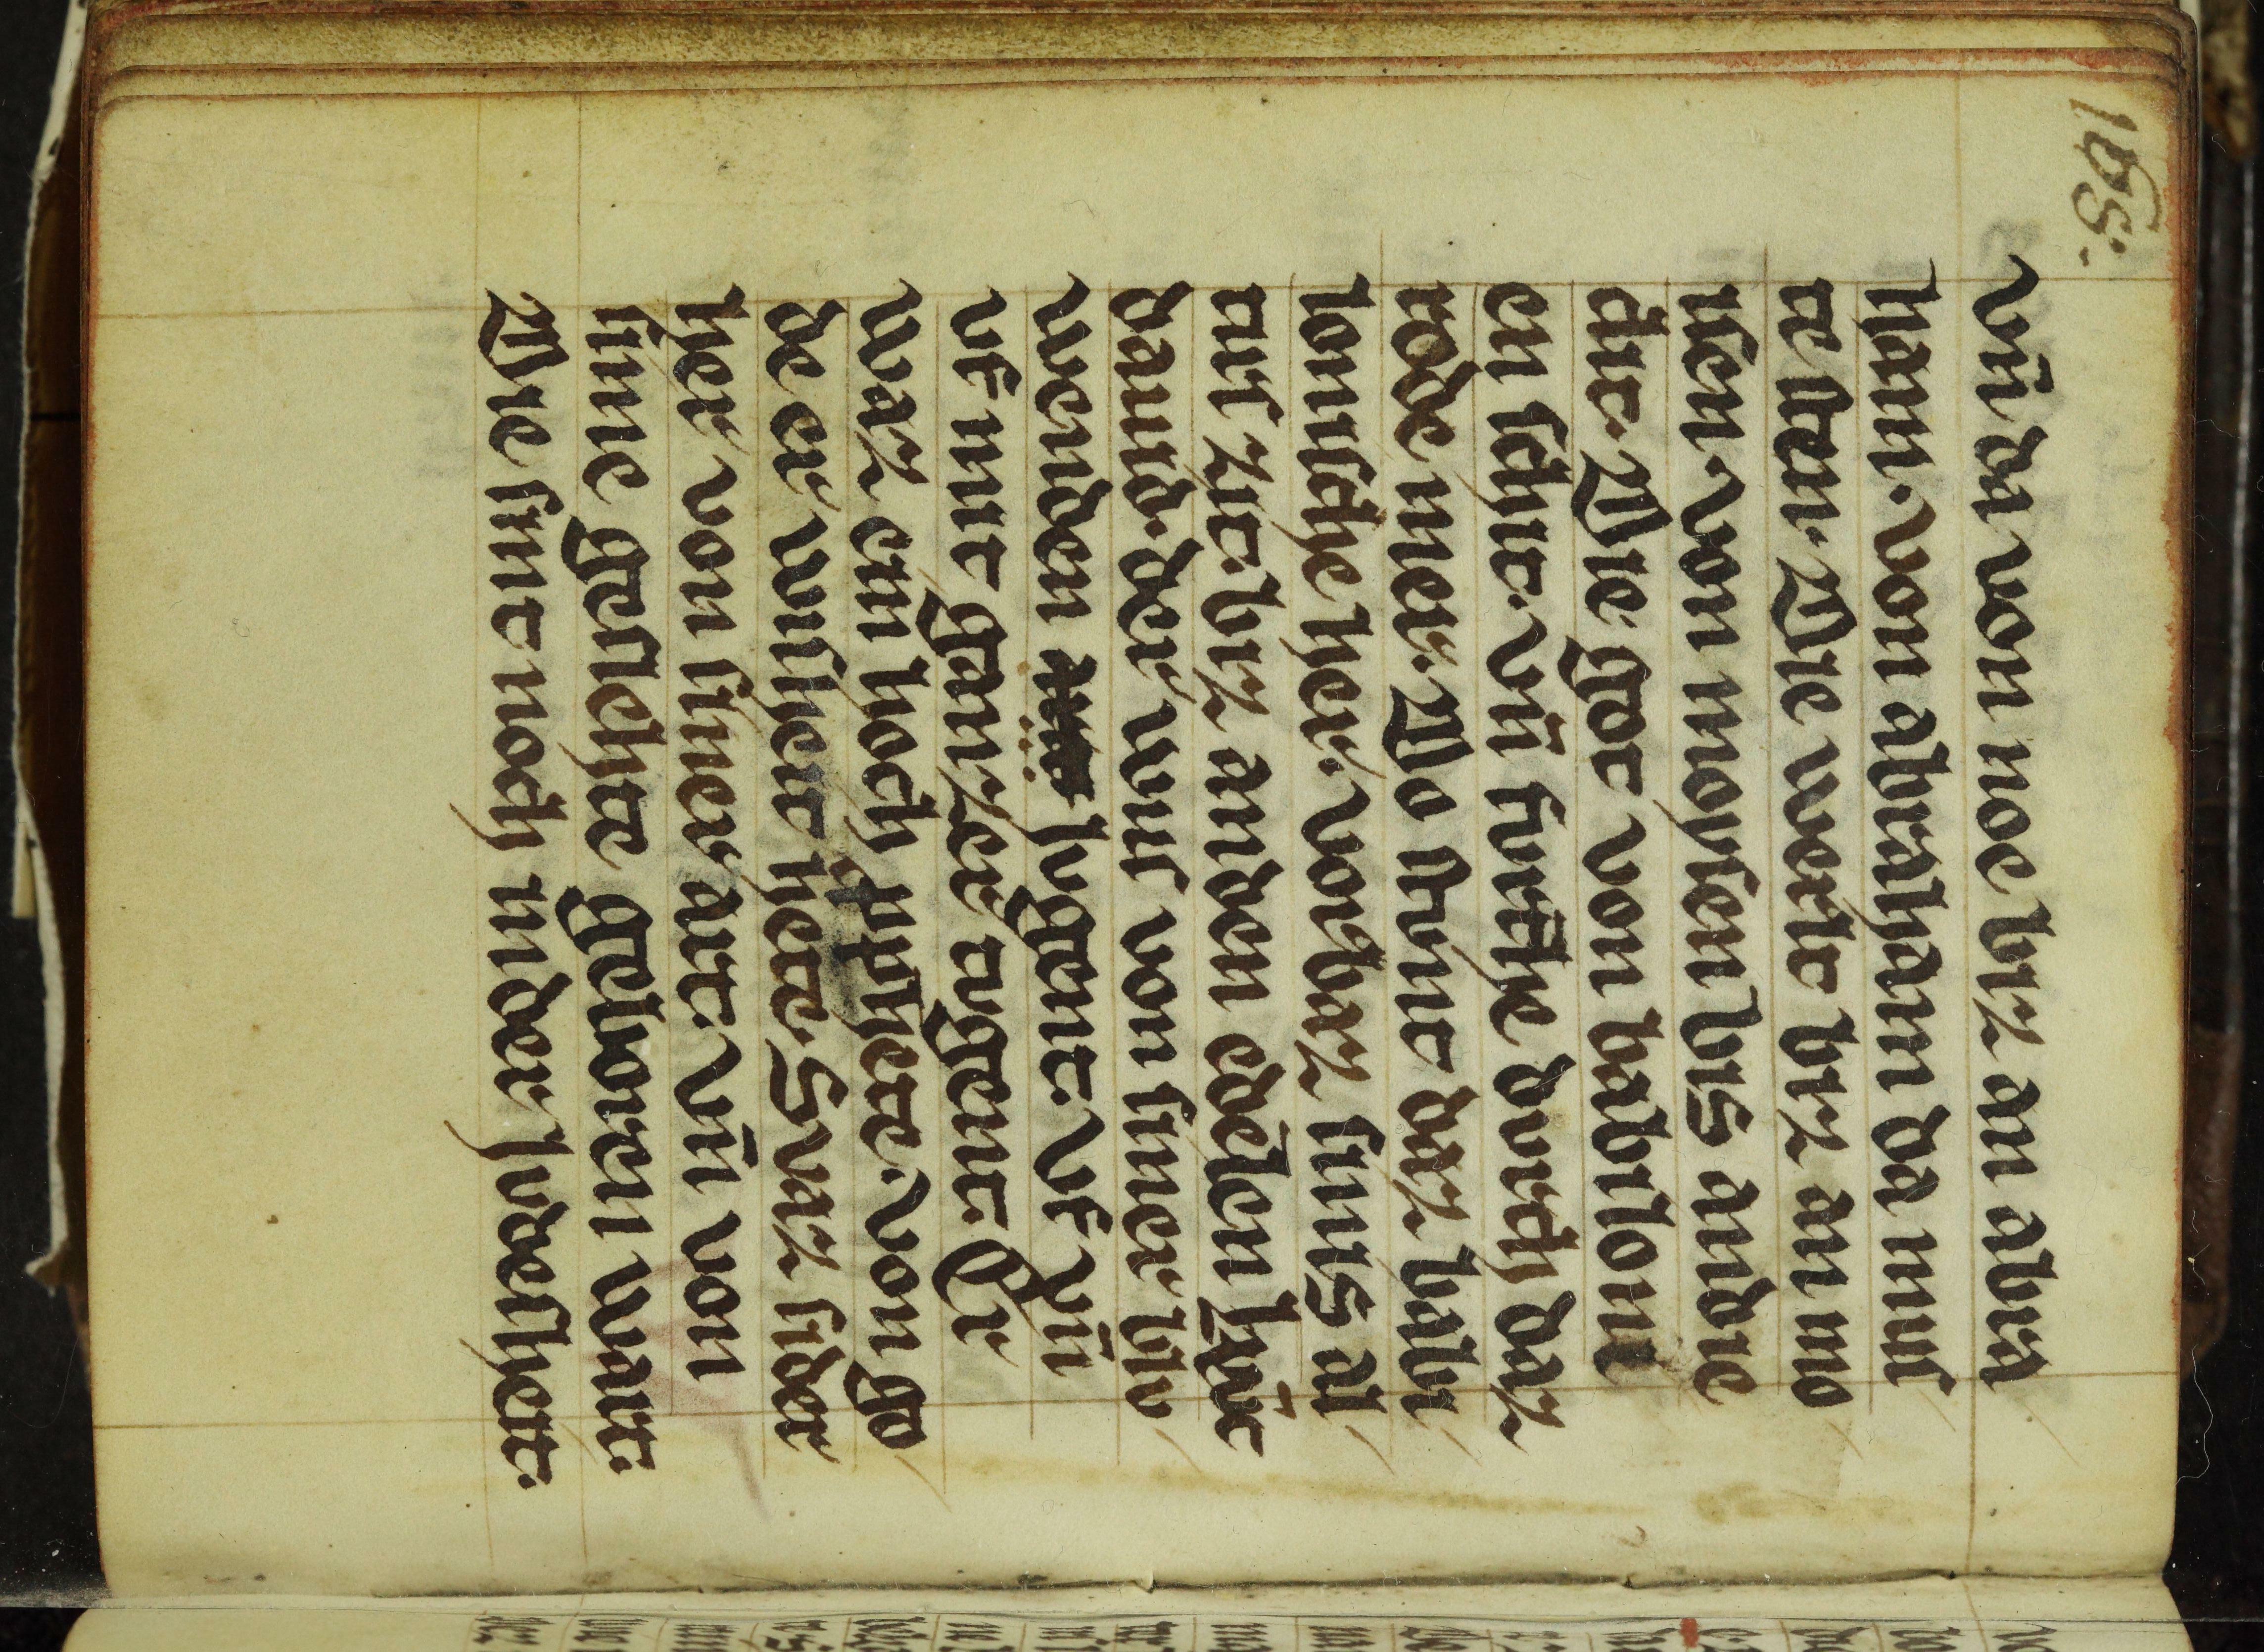 168.
vn̄ da von noe biz an abra
ham. von abraham da nint
te sten. Die werlt biz an mo
isen. von moysen bis an die
diet. Die got von babiloni
en schiet. vn̄ furthe durch daz
rode mer. Do stunt daz babi
lonische her. vorbaz sints al
tirs zit. biz an den edelen kūc
dauid. der wus von siner bio
wenden iugent. vf vn̄
vf mit ganzer tugent. Er
waz ein hoch pphete. von go
de er wisheit hete. Swaz sider
her von siner art. vn̄ von
sime geslehte geboren wart.
Die sint noch in der ioedesheit.